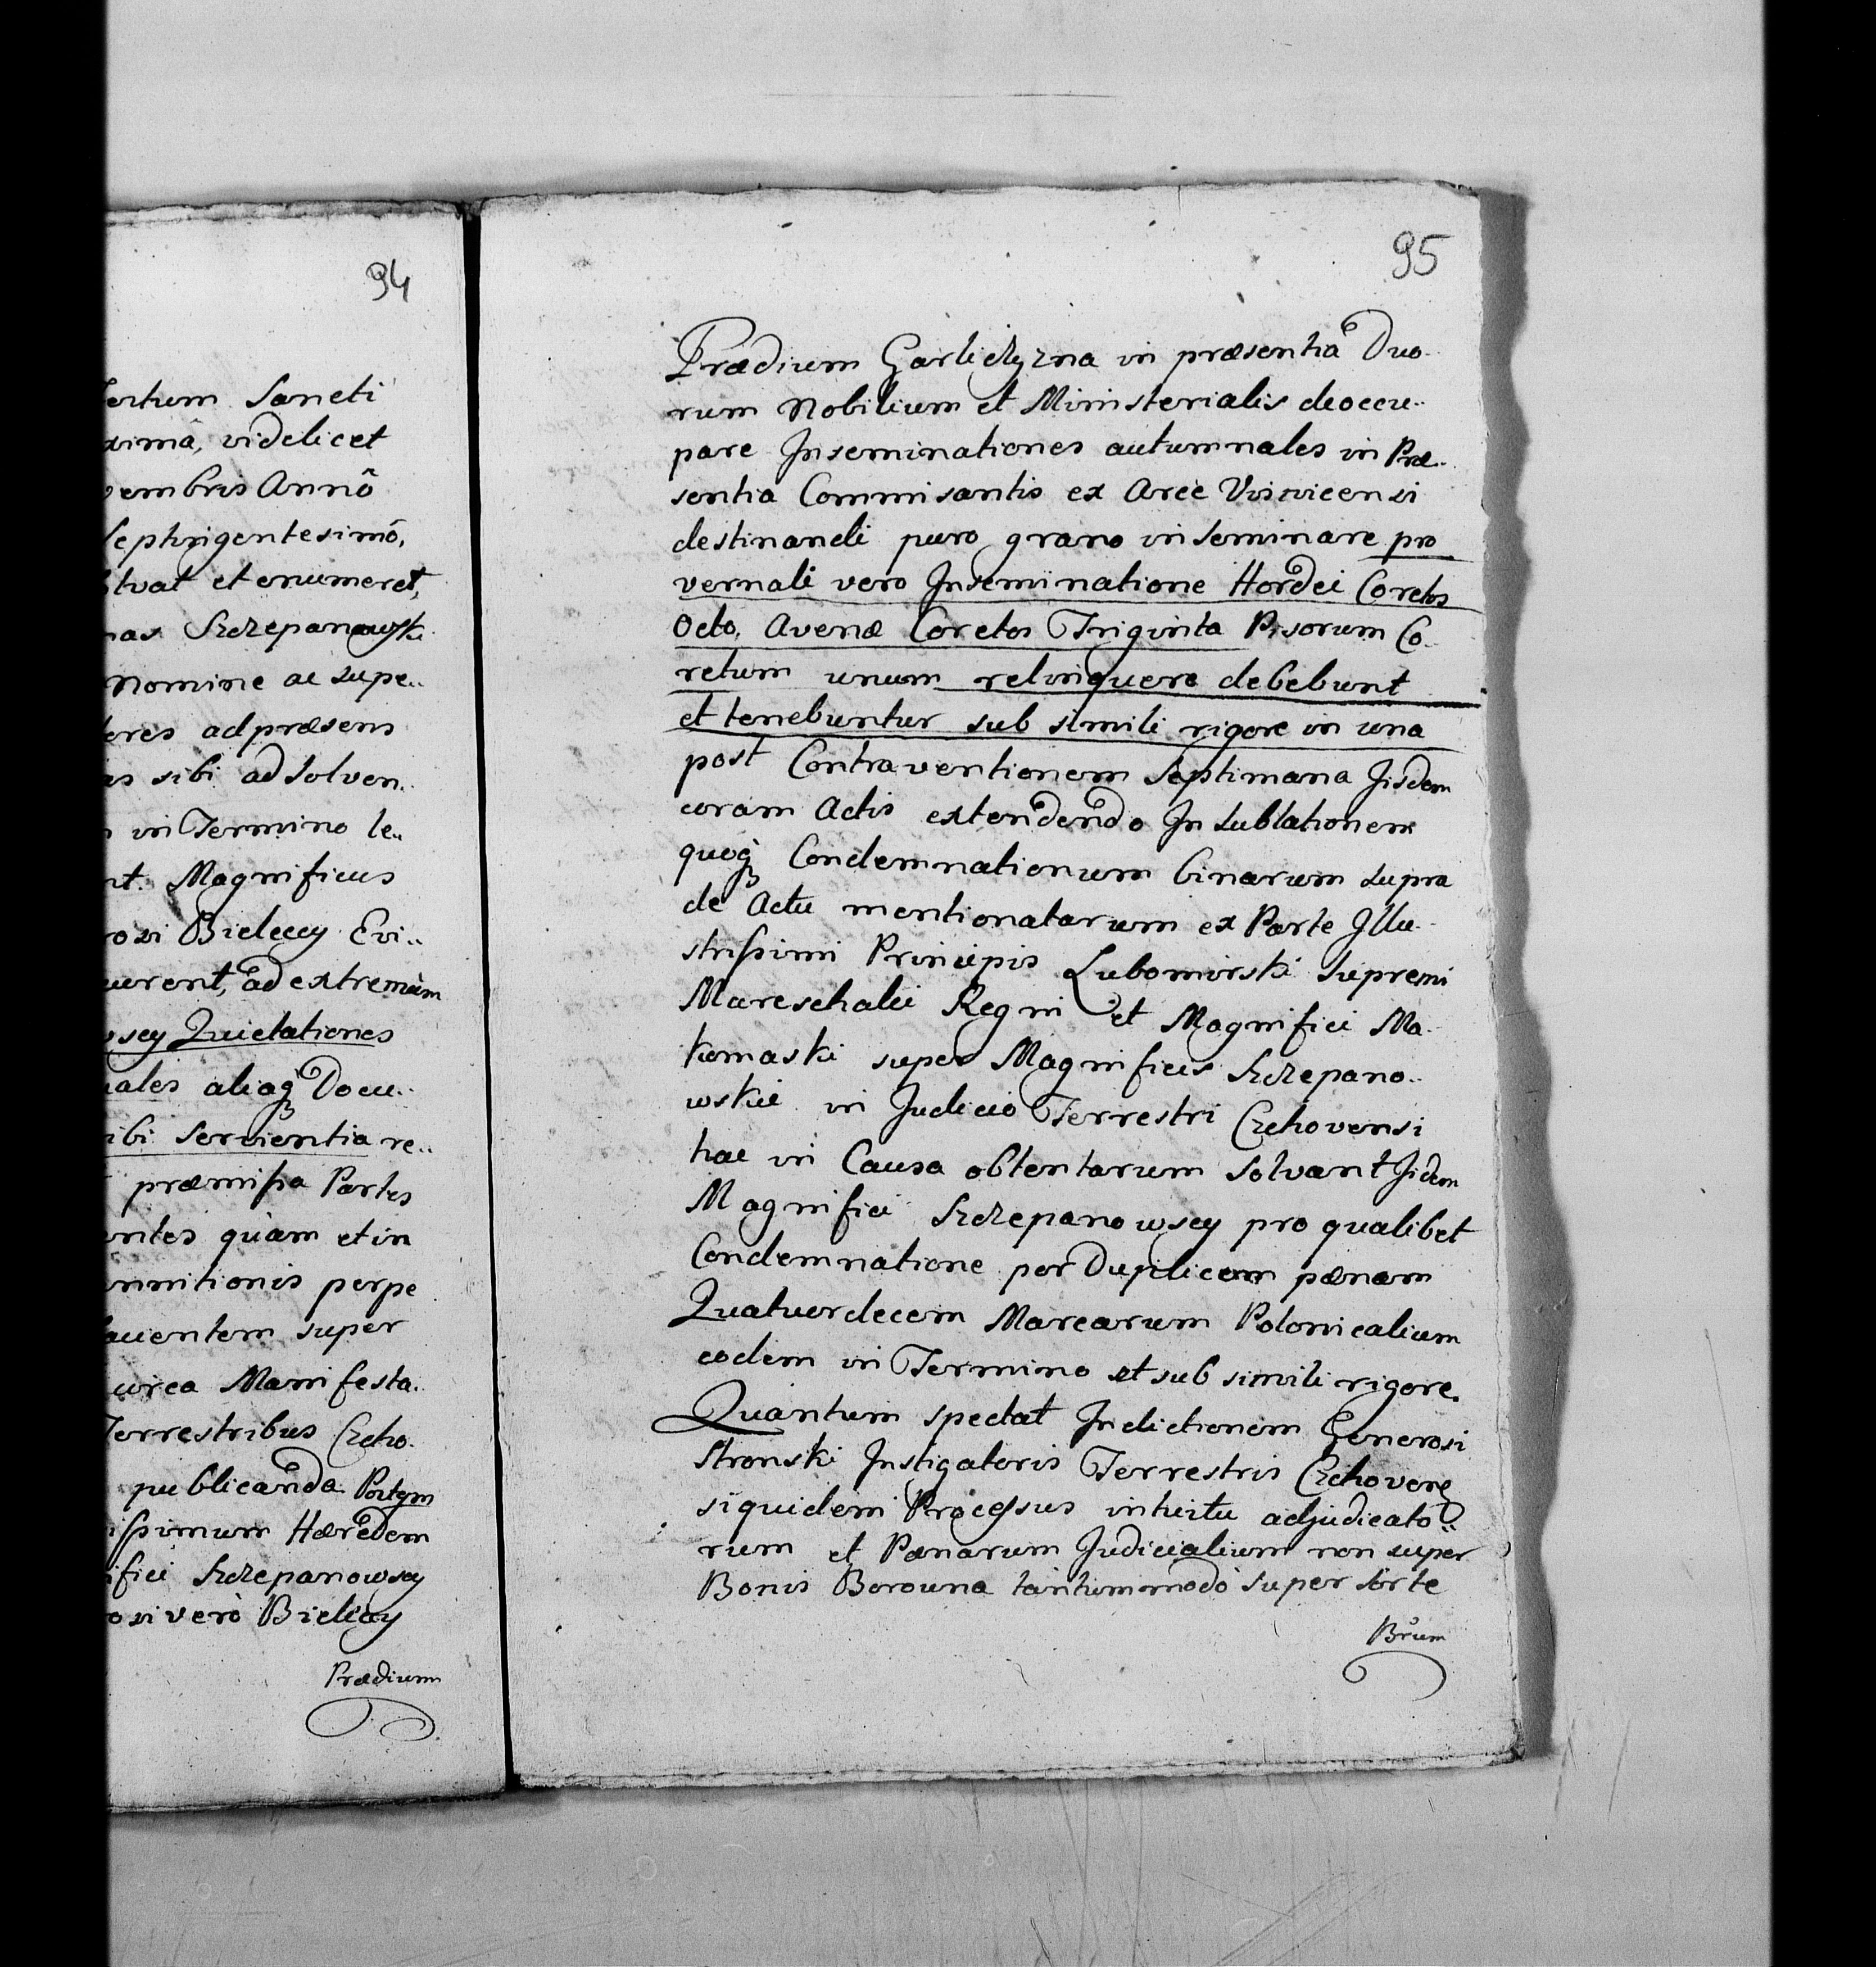 94
ertum Sancti
xima, videlicet
vembris Annô
Septingentesimô,
lvat et enumeret,
nas Szczepanowski
Nomine ac supe..
teres ad præsens
as sibi ad solven..
in Termino le..
nt. Magnificus
rosi Bieleccy Evi..
uerent, ad extremùm
wscy Quietationes
uales aliaq Docu..
ibi servientia re..
præmissa Partes
entes quàm et in
unitionis perpe
laventem super
curea Manifesta..
Terrestribus Czcho.
publicanda. Portem
issimum Hæredem
ifici Szczepanowscy
osi verò Bieleccy
Prædium
95
Prædium Garliczyzna in præsentiâ Duo..
rum Nobilium et Ministerialis deoccu..
pare Inseminationes autumnales in Præ..
sentia Commisantis ex Arce Wisnicensi
destinandi puro grano inseminare pro
vernali vero Inseminatione Hordei Coretos
Octo, Avenæ Coretos Triginta Pisorum Co..
retum unum relinquere debebunt
et tenebuntur sub simili rigore in una
post Contraventionem Septimana Iisdem
coram Actis extendendo In sublationem
quoq Condemnationum binarum supra
de Actu mentionatarum ex Parte Illu..
strissimi Principis Lubomirski Supremi
Mareschalci Regni et Magnifici Ma..
komaski super Magnificis Szczepano..
wskie in Judicio Terrestri Czchovensi
hac in Causa obtentarum Solvant Iidem
Magnifici Szczepanowscy pro qualibet
Condemnatione per Duplicem pænam
Quatuordecem Marcarum Polonicalium
eodem in Termino et sub simili rigore.
Quantum spectat Indictionem Generosi
Stronski Instigatoris Terrestris Czchoven
siquidem Processus intuitu adjudicato..
rum et Pænarum Judicialium non super
Bonis Borowna tantummodò super sorte
Brum